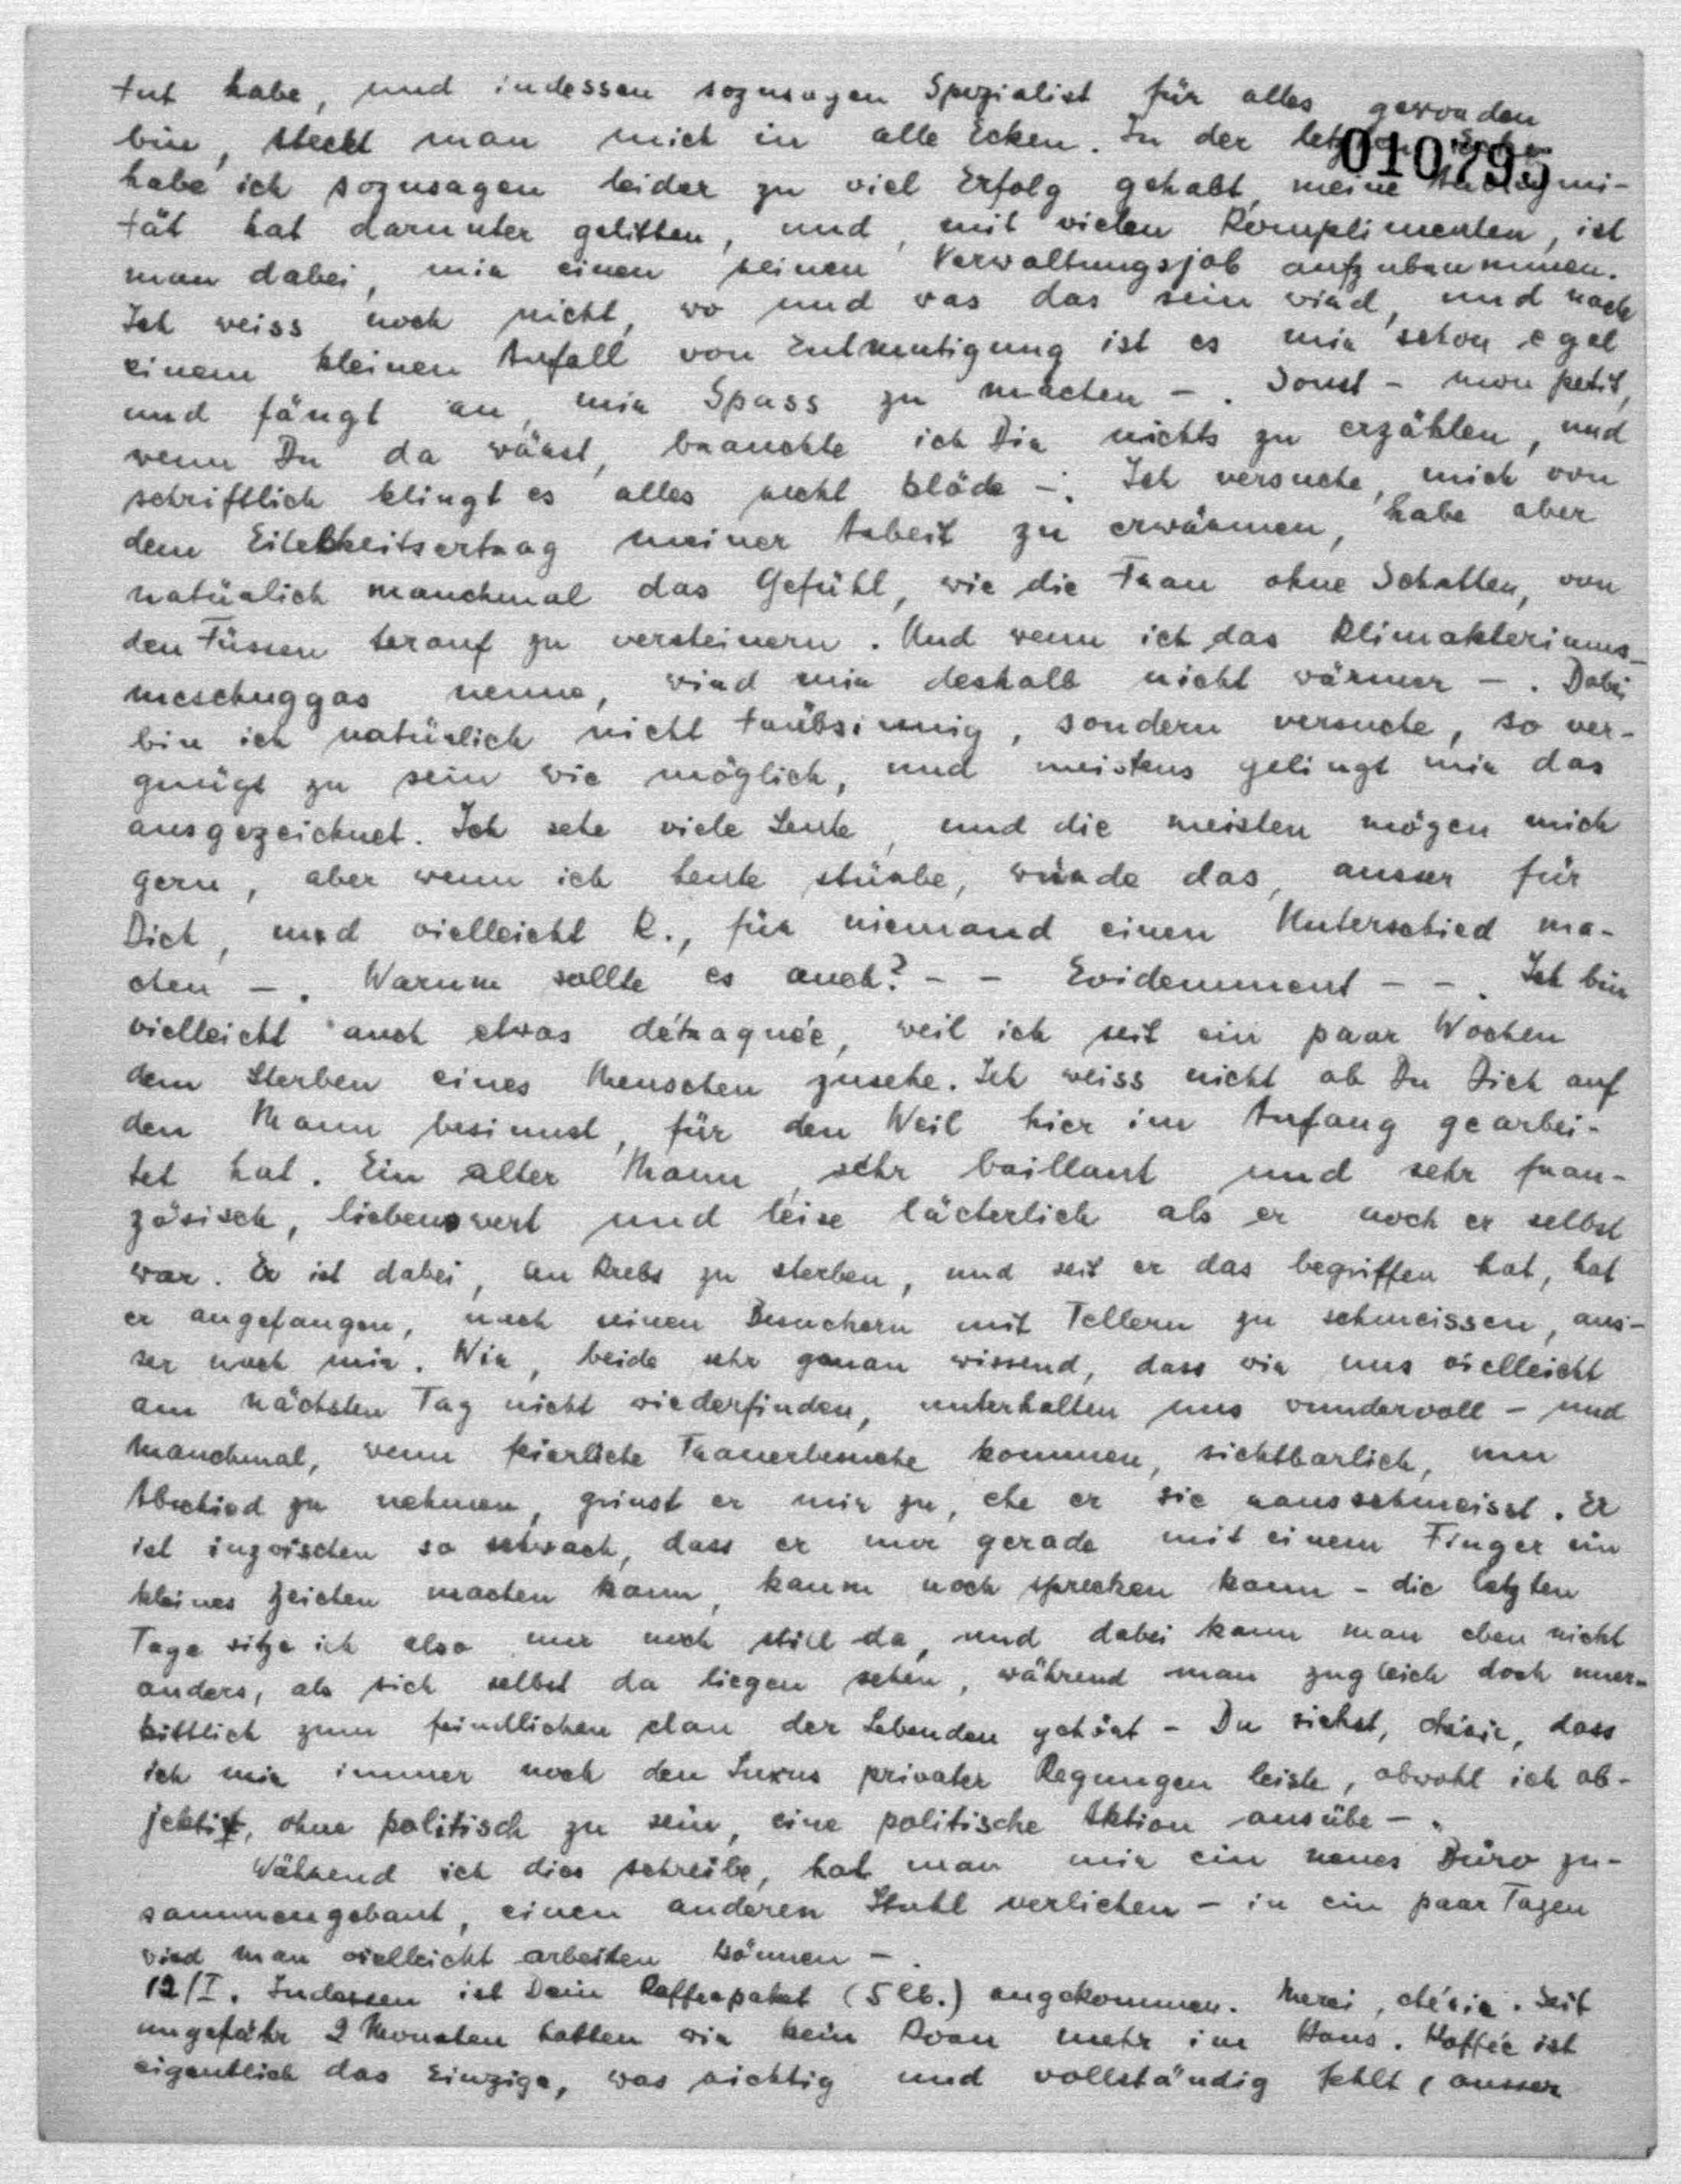 tut habe, und indessen sozusagen Spezialist für alles geworden
bin, steckt man mich in alle Ecken. In der letzten Ecke
010795
habe ich sozusagen leider zu viel Erfolg gehabt, meine Anonymi-
tät hat darunter gelitten, und, mit vielen Komplimenten, ist
man dabei, mir einen feinen Verwaltungsjob aufzubrummen.
Ich weiss noch nicht, wo und was das sein wird, und nach
einem kleinen Anfall von Entmutigung ist es mir schon egal
und fängt an, mir Spass zu machen -. Sonst - mon petit,
wenn Du da wärst, brauchte ich Dir nichts zu erzählen, und
schriftlich klingt es alles recht blöde -. Ich versuche, mich von
dem Eitelkeitsertrag meiner Arbeit zu erwärmen, habe aber
natürlich manchmal das Gefühl, wie die Frau ohne Schatten, von
den Füssen herauf zu versteinern. Und wenn ich das Klimakteriums-
meschuggas nenne, wird mir deshalb nicht wärmer -. Dabei
bin ich natürlich nicht trübsinnig, sondern versuche, so ver-
gnügt zu sein wie möglich, und meistens gelingt mir das
ausgezeichnet. Ich sehe viele Leute, und die meisten mögen mich
gern, aber wenn ich heute stürbe, würde das, ausser für
Dich, und vielleicht R., für niemand einen Unterschied ma-
chen -. Warum sollte es auch? - - Evidemment - -. Ich bin
vielleicht auch etwas détraquée, weil ich seit ein paar Wochen
dem Sterben eines Menschen zusehe. Ich weiss nicht ob Du Dich auf
den Mann besinnst, für den Weil hier im Anfang gearbei-
tet hat. Ein alter Mann, sehr brillant und sehr fran-
zösisch, liebenswert und leise lächerlich als er noch er selbst
war. Er ist dabei, an Krebs zu sterben, und seit er das begriffen hat, hat
er angefangen, nach seinen Besuchern mit Tellern zu schmeissen, aus-
ser nach mir. Wir, beide sehr genau wissend, dass wir uns vielleicht
am nächsten Tag nicht wiederfinden, unterhalten uns wundervoll - und
manchmal, wenn feierliche Trauerbesuche kommen, sichtbarlich, um
Abschied zu nehmen, grinst er mir zu, ehe er sie rausschmeisst. Er
ist inzwischen so schwach, dass er nur gerade mit einem Finger ein
kleines Zeichen machen kann, kaum noch sprechen kann - die letzten
Tage sitze ich also nur noch still da, und dabei kann man eben nicht
anders, als sich selbst da liegen sehen, während man zugleich doch uner-
bittlich zum feindlichen clan der Lebenden gehört - Du siehst, chérie, dass
ich mir immer noch den Luxus privater Regungen leiste, obwohl ich ob-
jektiv, ohne politisch zu sein, eine politische Aktion ausübe -.
Während ich dies schreibe, hat man mir ein neues Büro zu-
sammengebaut, einen anderen Stuhl verliehen - in ein paar Tagen
wird man vielleicht arbeiten können -.
12/I. Indessen ist Dein Kaffeepaket (5 lb.) angekommen. Merci, chérie. Seit
ungefähr 2 Monaten hatten wir kein Gran mehr im Haus. Kaffée ist
eigentlich das Einzige, was richtig und vollständig fehlt (ausser